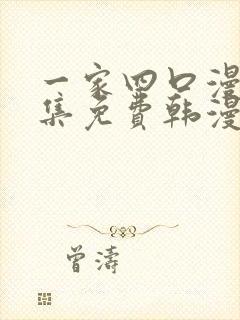 一家四口漫
集免费韩漫
曾濤